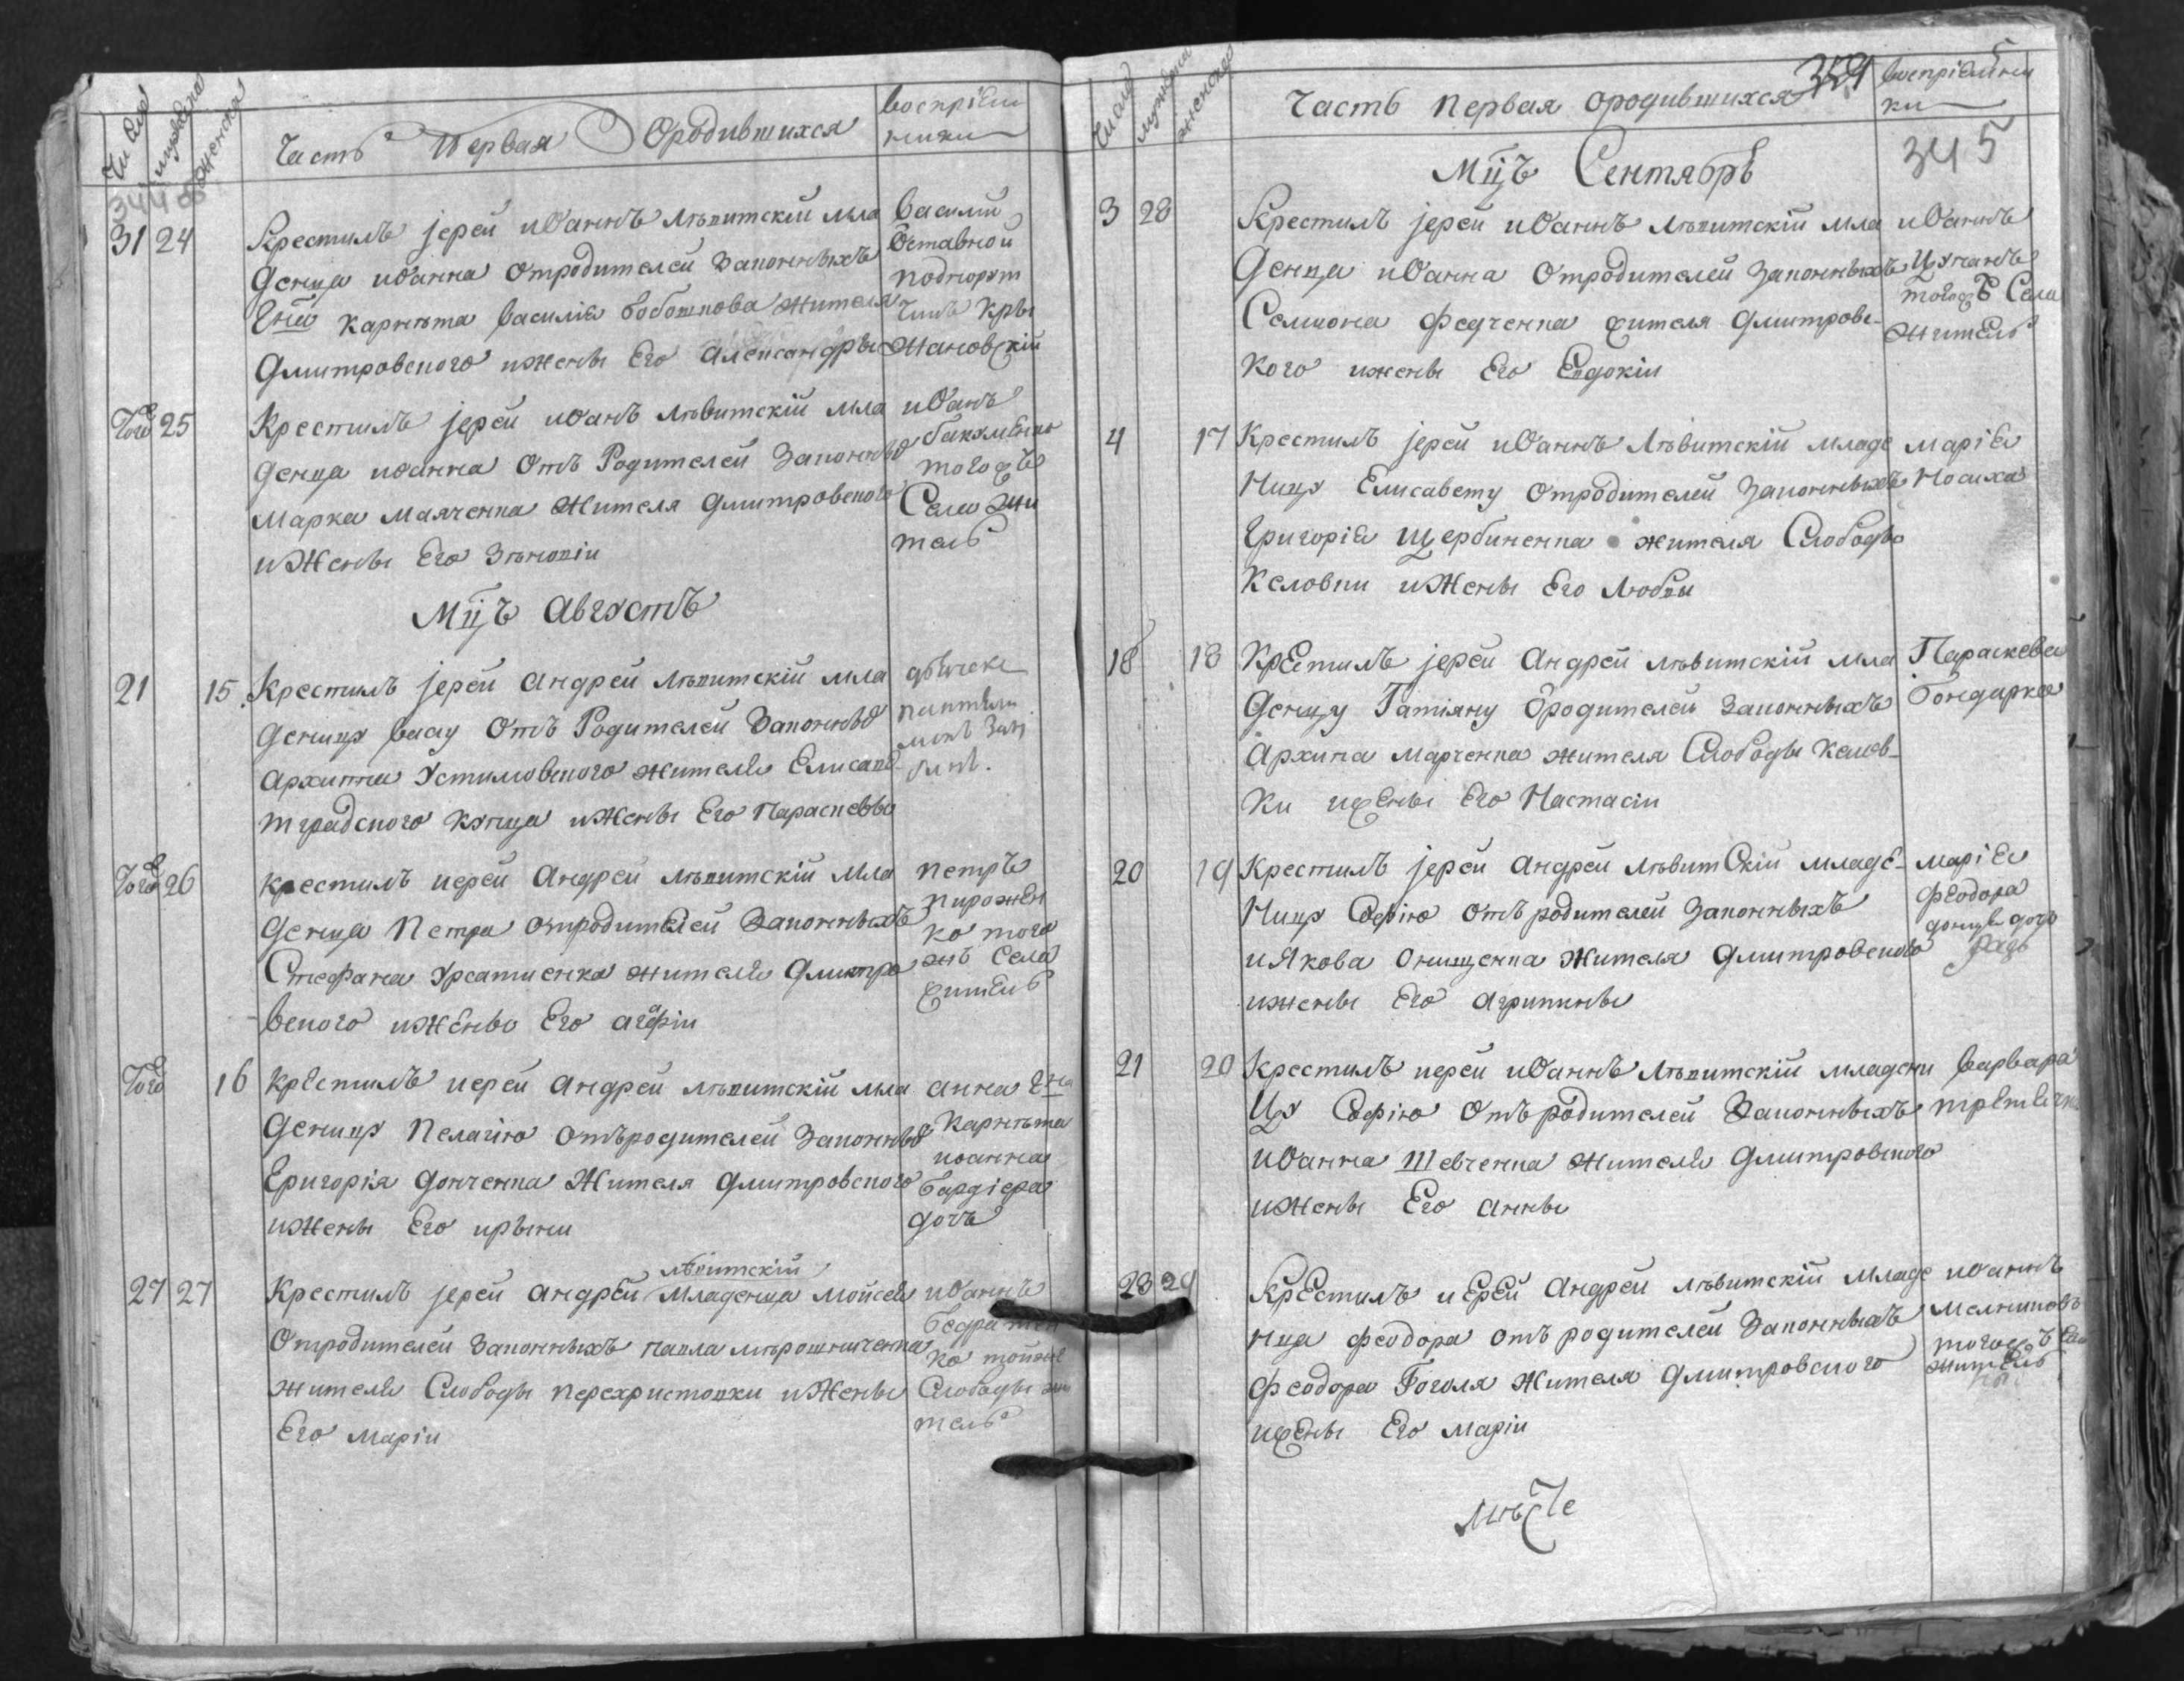 Число
мужеска
женска
Часть Первая Ородившихся
воспріем
ники
344 об
31 24
Крестилъ јерей иѺаннъ Лѣвитскій мла
денца иѺанна Ѿродителей Законныхъ
Гдна Карнета Василія Бобошкова жителя
Дмитровского ижены Его Александры
Василій
Ѿставной
подпорут
чикъ Кры
жановскій
Того 25
Крестилъ јерей иѺанъ Лѣвитскій мла
денца иѺанна Ѿтъ Родителей Законны
Марка Маяченка Жителя Дмитровского
иЖены Его Зѣновіи
иѺанъ
бакҰменко
тогожъ
Села жи
тель
Мцъ АвгҰстъ
21 15
Крестилъ јерей Андрей Лѣвитскій мла
денцҰ Вассу Ѿтъ Родителей Законны
Архиппа Устимовского жителя Елисаве
тградского КҰпца иЖены Его Параскевы
Того 26
Крестилъ иерей Андрей Лѣвитскій Мла
денца Петра Ѿродителей Законныхъ
Стефана жителя Дмитро
вского иЖены Его агафіи
петръ
пирожен
ко того
жъ Села
житель
Того 16
Крестилъ иерей Андрей Лѣвитскій мла
денцҰ Пелагію Ѿтъродителей Законны
Григорія Донченка Жителя Дмитровского
иЖены Его ирыни
анна Гдна
Карнета
иоанна
бардіера
дочь
27 27
Крестилъ јерей Андрей Лѣвитскій Младенца Мойсея
Ѿродителей Законныхъ Павла Мѣрошниченка
жителя Слободы Перехристовки иЖены
Его Маріи
иѺаннъ
ко тойже
Слободы жи
тель
Число
мужеска
женска
Часть Первая Ородившихся
воспріемни
ки
345
Мцъ Сентябрь
3 28
Крестилъ јерей иѺаннъ Лѣвитскій мла
денца иѺанна Ѿродителей Законныхъ
Семиона Федченка жителя Дмитровс-
кого ижены Его Евдокіи
иѺаннъ
тогожъ Села
житель
4 17
Крестилъ јерей иѺаннъ Лѣвитскій младе
ницҰ Елисавету Ѿродителей Законныхъ
Григорія Щербиненка жителя Слободы
Келовки иЖены Его Любвы
Марія
Носиха
18 18
Крестилъ јерей Андрей Лѣвитскій мла
денцу Татіяну Ѿродителей Законныхъ
Архипа Марченка жителя Слободы Келов-
ки ижены Его Настасіи
Параскева
Бондарка
20 19
Крестилъ јерей Андрей Лѣвитскій младе-
ницҰ Софію Ѿтъродителей Законныхъ
иЯкова Онищенка Жителя Дмитровского
ижены Его Агрипины
Марія
Феодора
21 20
Крестилъ иерей иѺаннъ Лѣвитскій младени
цҰ Софію Ѿтъродителей Законныхъ
иѺанна Шевченка жителя Дмитровского
иЖены Его Анны
Варвара
28 29
Крестилъ иерей Андрей Лѣвитскій Младе
нца Феодора Ѿтъ родителей Законныхъ
Феодора Гоголя Жителя Дмитровского
ижены Его Маріи
иѺаннъ
Мелниковъ
тогожъ Села
житель